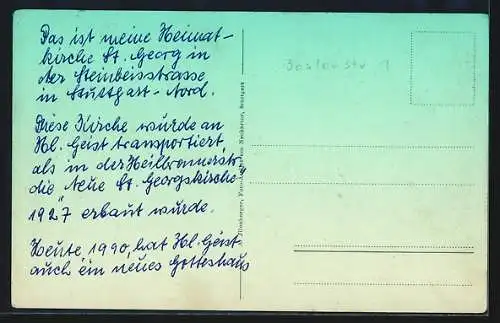 Das ist meine Heimat-
kirche St. Georg in
der Steinbeisstrasse
in Stuttgart-Nord.
Diese Kirche wurde an
Hl. Geist transportiert,
als in der Heilbronnerstr.
die Neue St. Georgskirche
1927 erbaut wurde.
Heute, 1990, hat Hl. Geist
auch ein neues Gotteshaus
Stuttgart
1